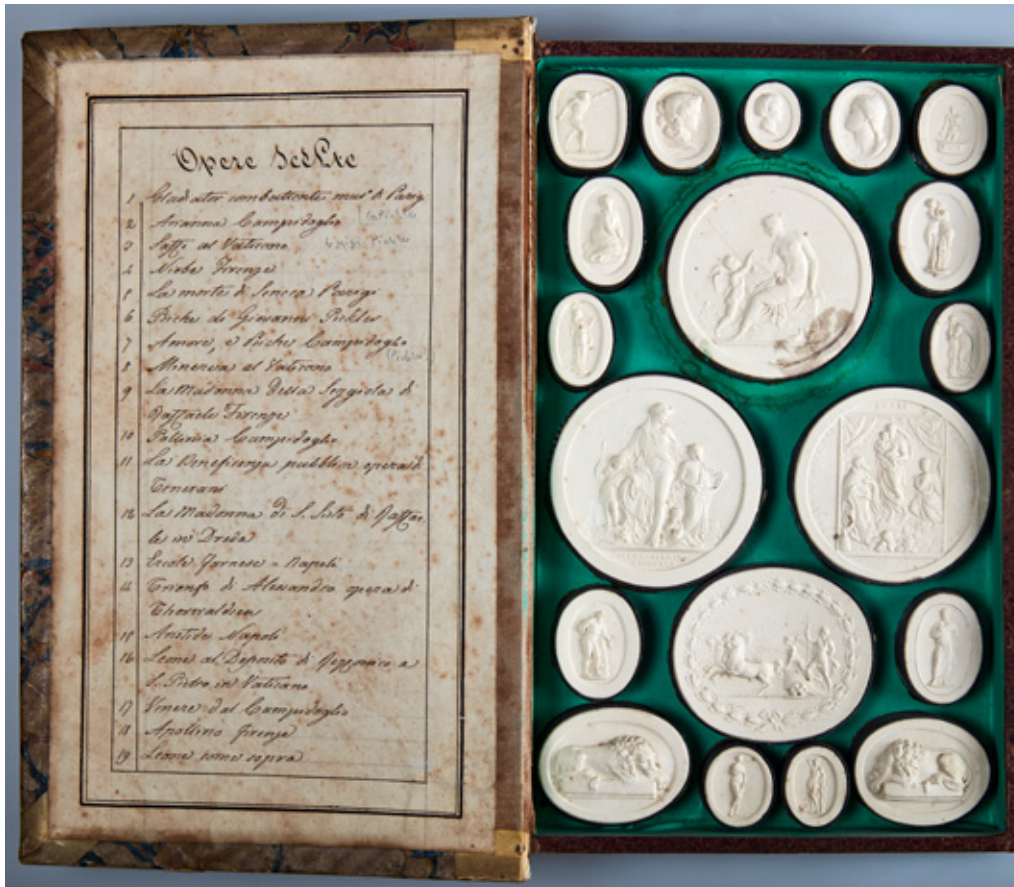 Opere Scelte
1 Gladiator combattente mus° di Parigi
2 Arianna Campidoglio
3 Saffo al Vaticano Luigi Pichler
4 Niobe Firenze
5 La morte di Seneca Parigi
6 Psiche di Giovanni Pickler
7 Amore, e Psiche Campidoglio
8 Minerva al Vaticano
9 La Madonna della Seggiola di
Raffaele Firenze
10 Pollinia Campidoglio
11 La Beneficenza pubblica opera di
Tenerani
12 La Madonna di S. Sisto di Raffae
le in Dresda
13 Ercole Farnese - Napoli
14 Trionfo di Alessandro opera di
Thorvaldsen
15 Aristide Napoli
16 Leone al Deposito di Rezzonico a
S. Pietro in Vaticano
17 Venere dal Campidoglio
18 Apollino Firenze
19 Leone come sopra